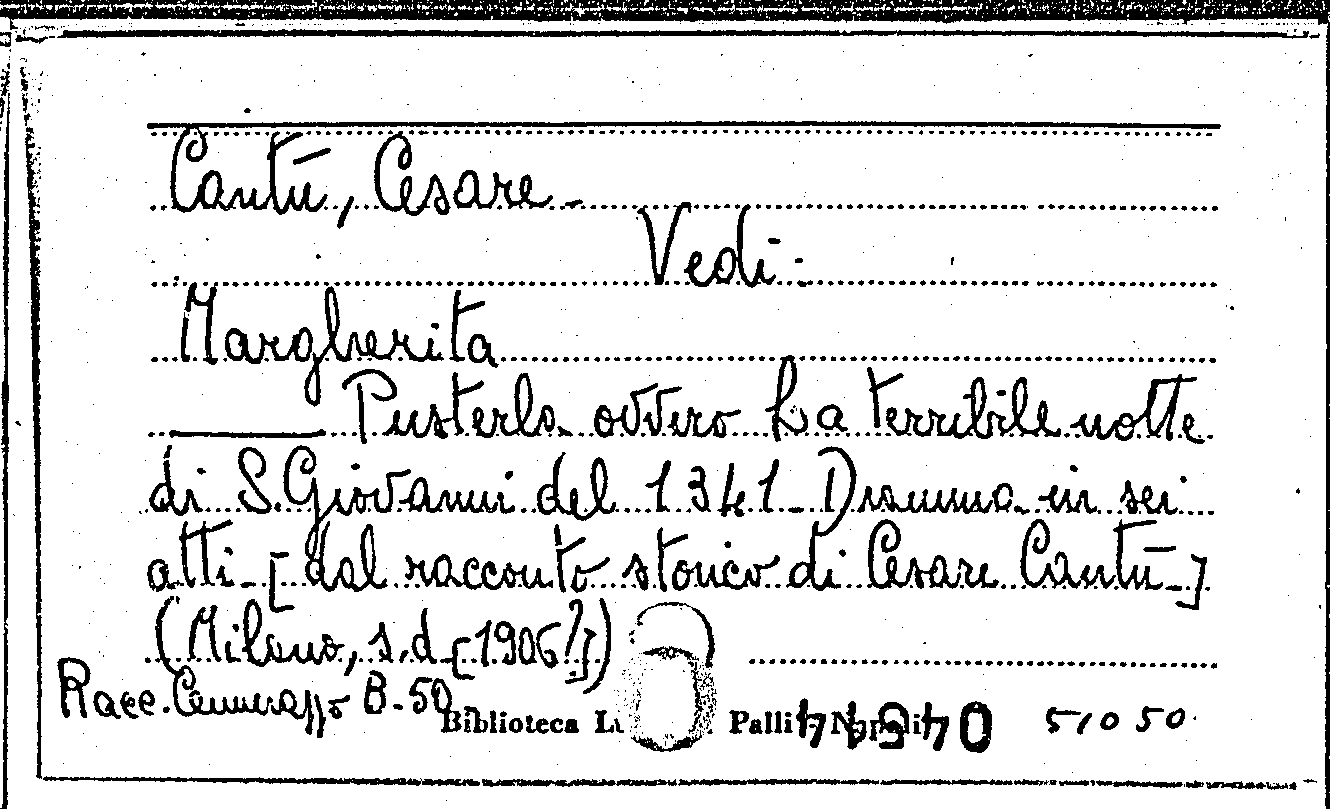 Cantù, Cesare -
Vedi:
Margherita
Pusterla ovvero La terribile notte
di S. Giovanni del 1341 - Dramma in sei
atti - [dal racconto storico di Cesare Cantù -]
(Milano, s.d. [1906?])
Racc. B-50
Biblioteca Palli Napoli 51050